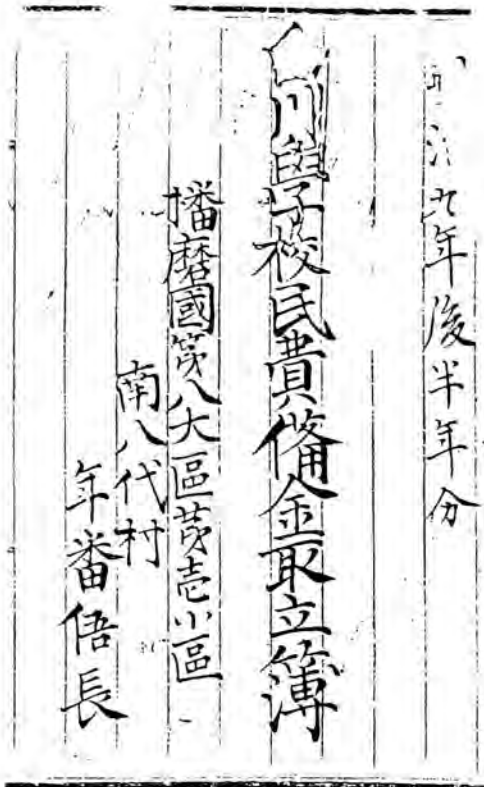 明治九年後半年分
學校民費備金取立簿
播磨國第八大區第壱小區
南八代村
年番俉長